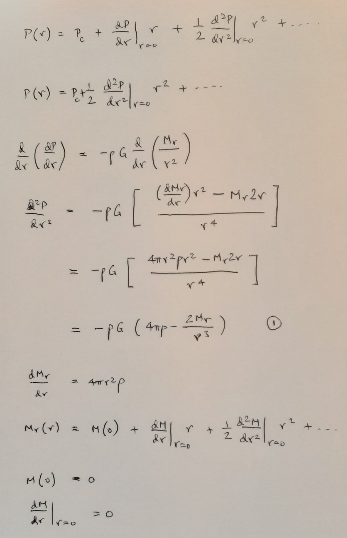 P(r) = P_c + dP/dr|_{r=0} r + 1/2 d²P/dr²|_{r=0} r² + .....
P(r) = P_c + 1/2 d²P/dr²|_{r=0} r² + ----
d/dr (dP/dr) = -ρG d/dr (M_r/r²)
d²P/dr² = -ρG [ ((dM_r/dr) r² - M_r 2r) / r⁴ ]
= -ρG [ (4πr²ρr² - M_r 2r) / r⁴ ]
= -ρG (4πρ - 2M_r/r³) ①
dM_r/dr = 4πr²ρ
M_r(r) = M(0) + dM/dr|_{r=0} r + 1/2 d²M/dr²|_{r=0} r² + ...
M(0) = 0
dM/dr|_{r=0} = 0